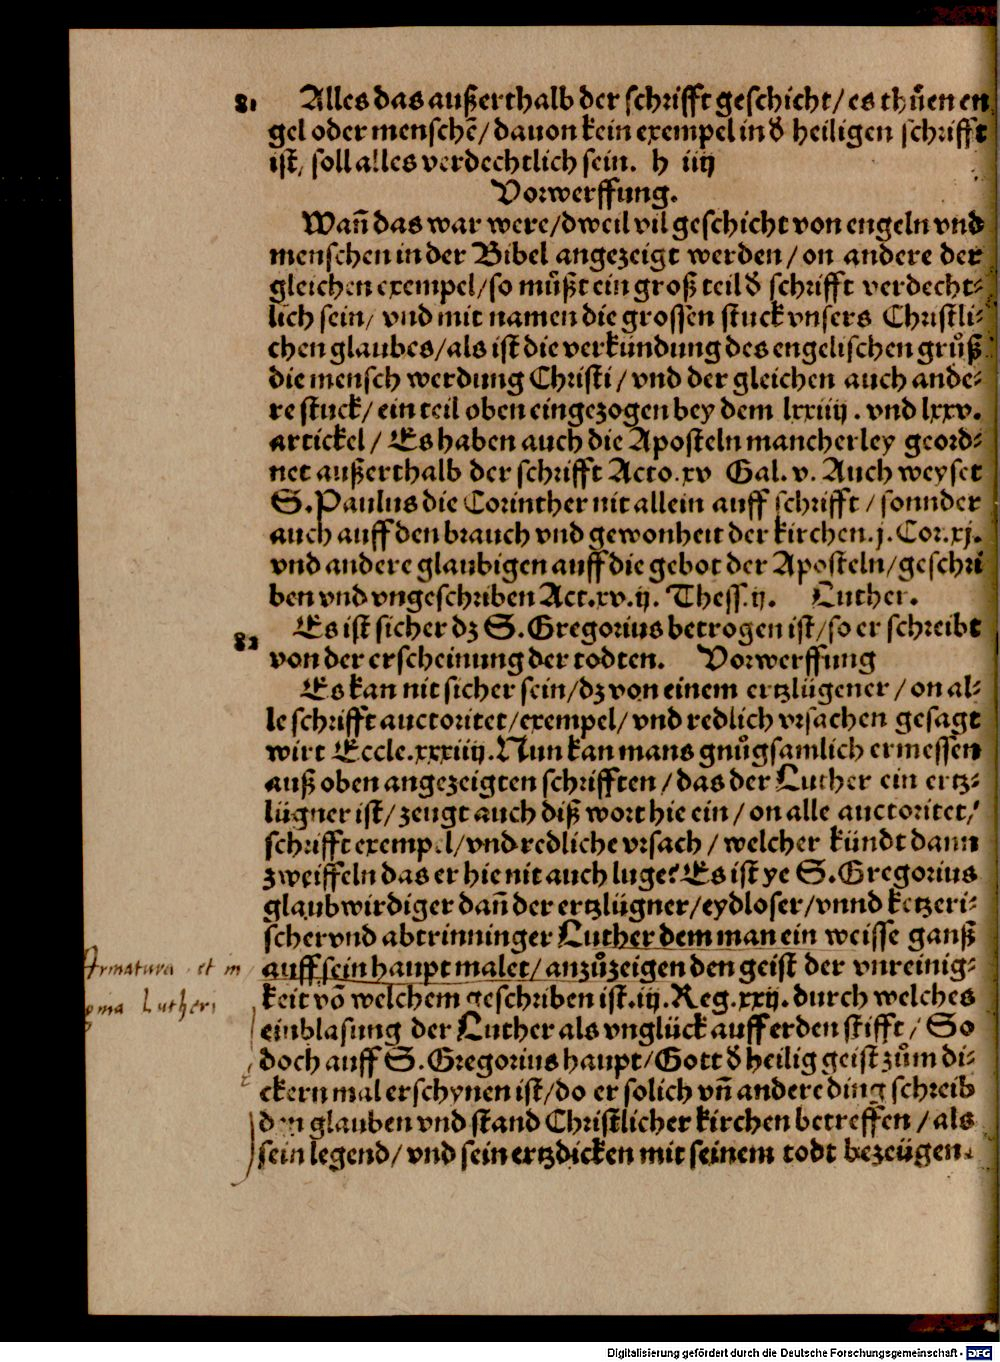 81 Alles das außerthalb der schrifft geschicht/ es thůen en
gel oder menschē/ dauon kein exempel in d̕ heiligen schrifft
ist/ soll alles verdechtlich sein. h iiij
Vorwerffung.
Wañ das war were/ dweil vil geschicht von engeln vnd
menschen in der Bibel angezeigt werden/ on andere der
gleichen exempel/ so můßt ein groß teil d̕ schrifft verdecht⸗
lich sein/ vnd mit namen die grossen stuck vnsers Christli⸗
chen glaubes/ als ist die verkündung des engelischen grůß
die mensch werdung Christi/ vnd der gleichen auch ande⸗
re stuck/ ein teil oben eingezogen bey dem lxxiiij. vnd lxxv.
artickel/ Es haben auch die Aposteln mancherley geord⸗
net außerthalb der schrifft Acto.xv Gal. v. Auch weyset
S. Paulus die Corinther nit allein auff schrifft/ sonnder
auch auff den brauch vnd gewonheit der kirchen.j.Cor.xj.
vnd andere glaubigen auff die gebot der Aposteln/ geschri
ben vnd vngeschriben Act.xv.ij. Thess.ij. Luther.
82 Es ist sicher dz S. Gregorius betrogen ist/ so er schreibt
von der erscheinung der todten. Vorwerffung
Es kan nit sicher sein/ dz von einem ertzlügener/ on al⸗
le schrifft auctoritet/ exempel/ vnd redlich vrsachen gesagt
wirt Eccle.xxxiiij. Nun kan mans gnůgsamlich ermessen
auß oben angezeigten schrifften/ das der Luther ein ertz⸗
lügner ist/ zeugt auch diß wort hie ein/ on alle auctoritet/
schrifft exempel/ vnd redliche vrsach/ welcher kündt dann
zweiffeln das er hie nit auch luge? Es ist ye S. Gregorius
glaubwirdiger dañ der ertzlügner/ eydloser/ vnnd ketzeri⸗
scher vnd abtrinninger Luther dem man ein weisse ganß
auff sein haupt malet/ anzůzeigen den geist der vnreinig⸗
keit vō welchem geschriben ist.iij.Reg.xxij. durch welches
einblasung der Luther als vnglück auff erden stifft/ So
doch auff S. Gregorius haupt/ Gott d̕ heilig geist zům di⸗
ckern mal erschynen ist/ do er solich vñ andere ding schreib
den glauben vnd stand Christlicher kirchen betreffen/ als
sein legend/ vnd sein ertzdicken mit seinem todt bezeügen.
Armatura et in
Lutheri
Digitalisierung gefördert durch die Deutsche Forschungsgemeinschaft - DFG